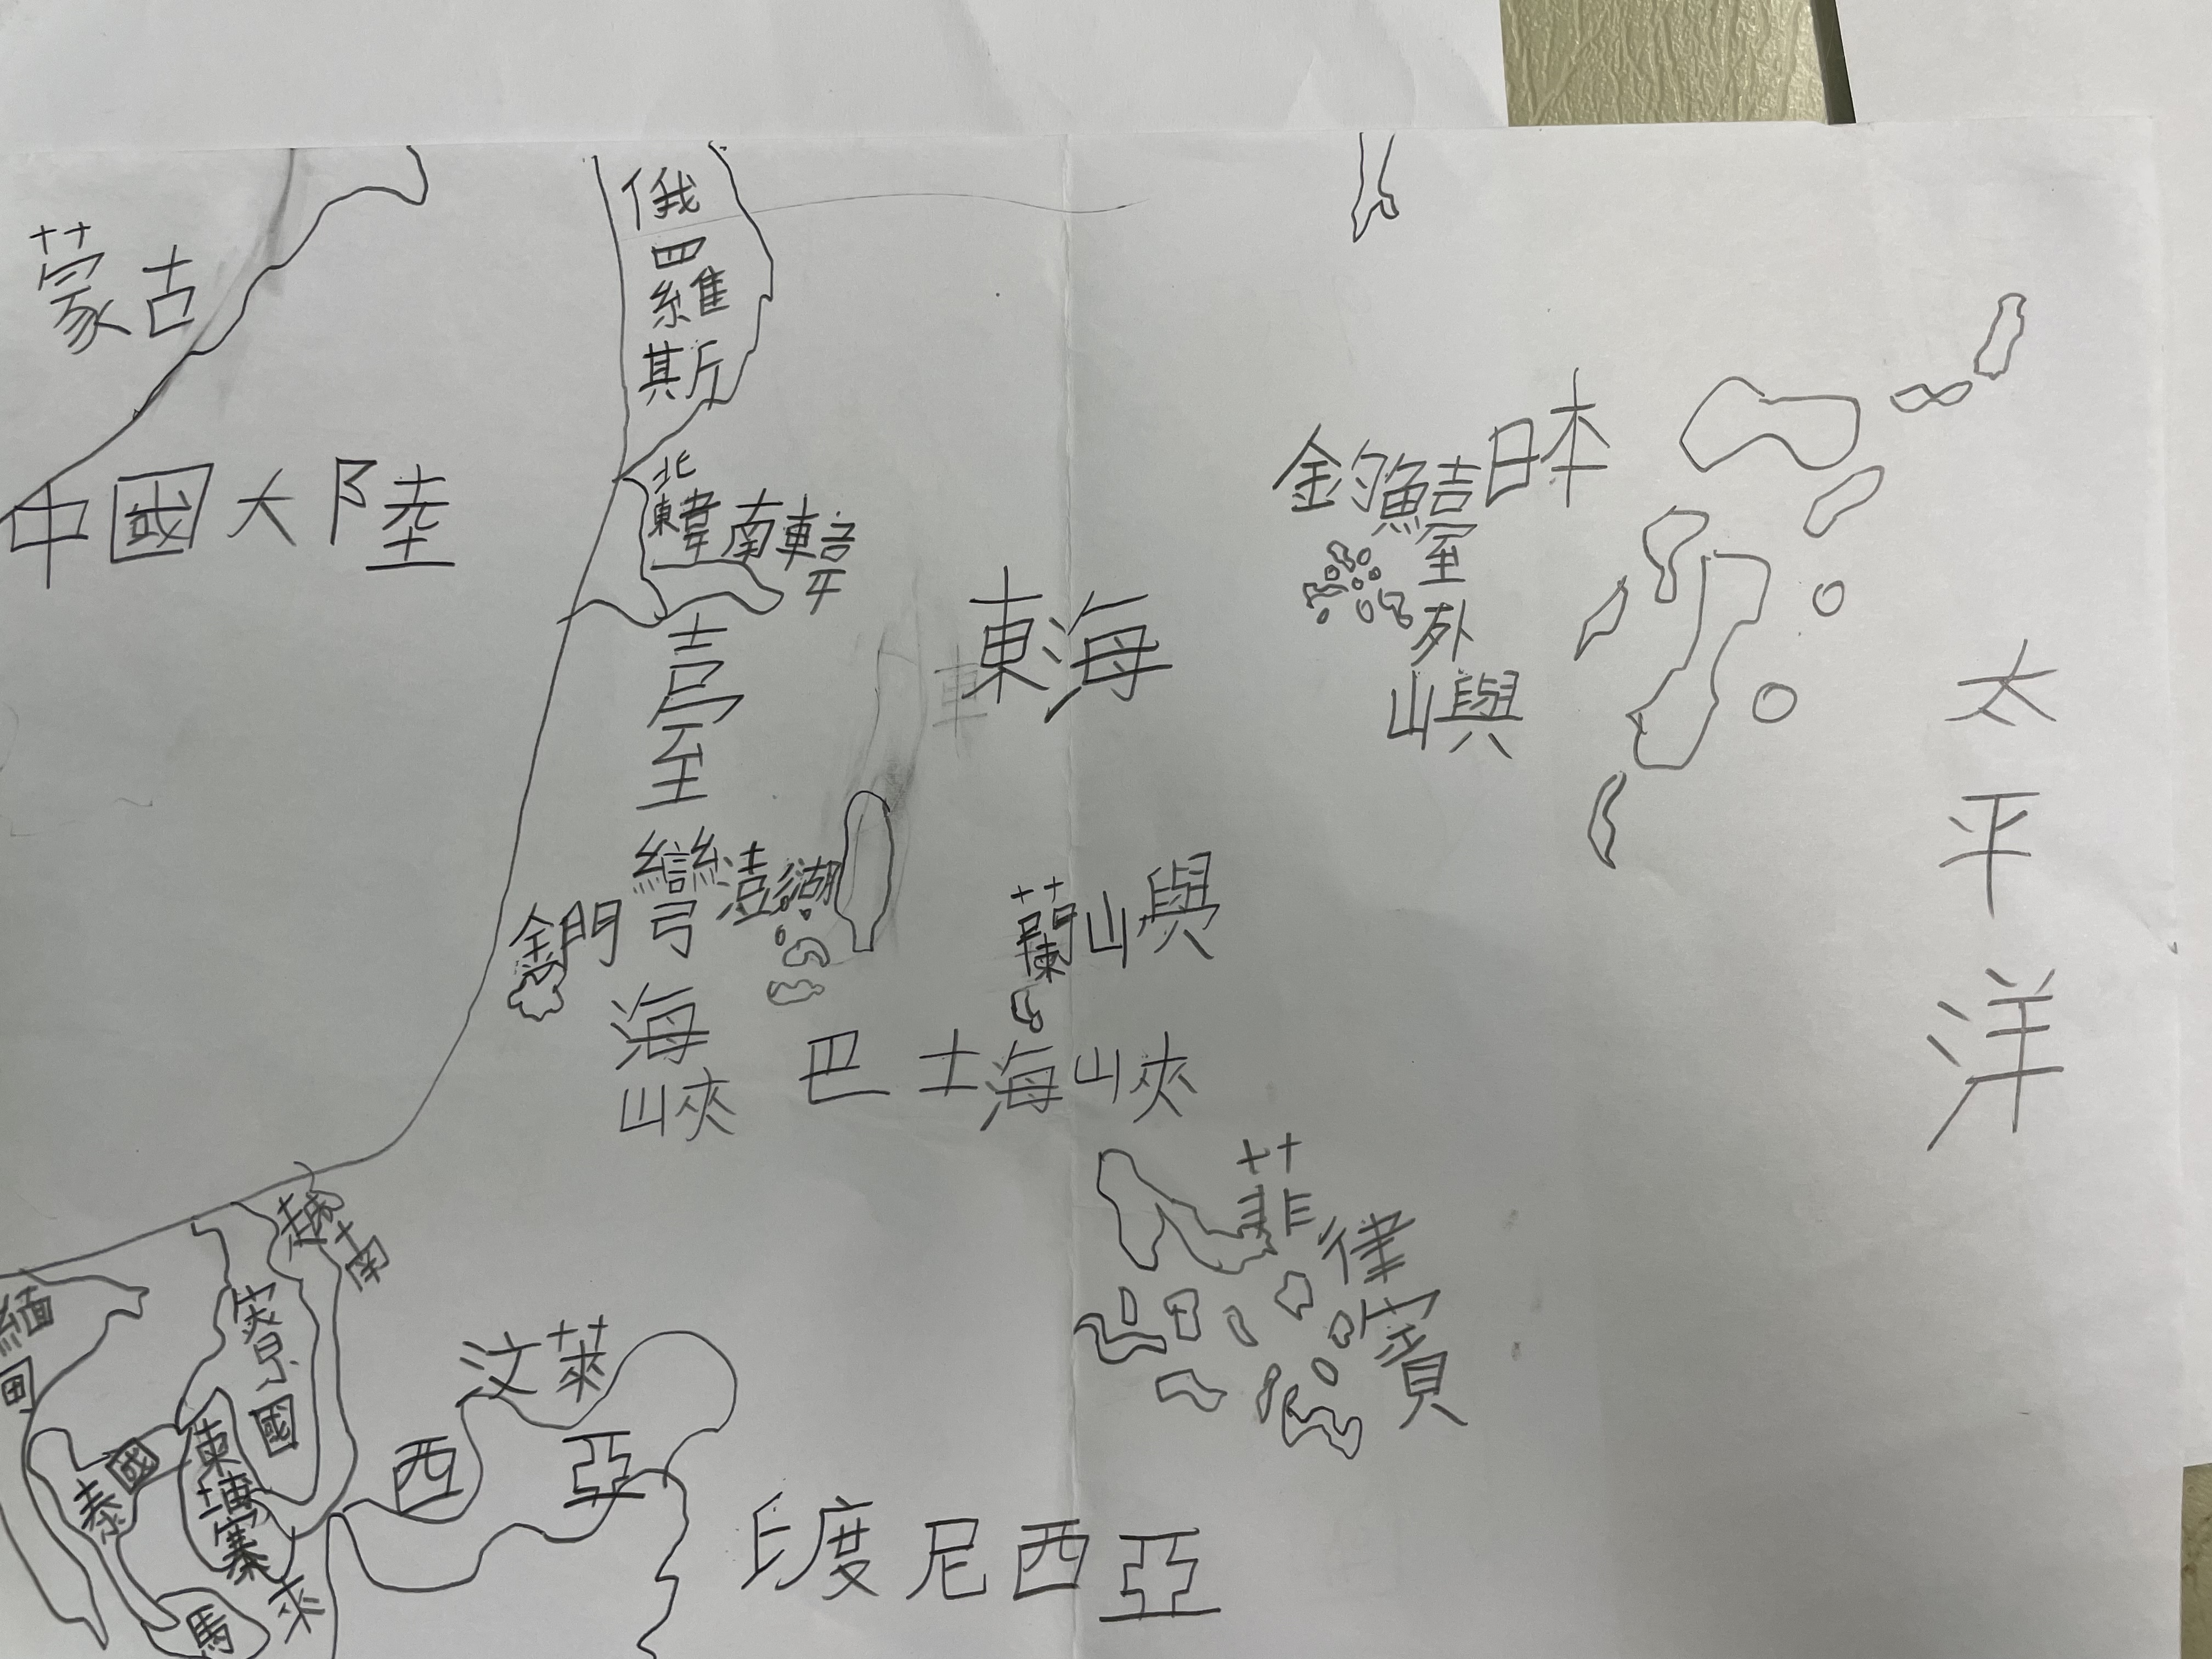 蒙古
俄羅斯
中國大陸
北韓
南韓
日本
釣魚臺列嶼
東海
太平洋
臺灣海峽
澎湖
金門
蘭嶼
巴士海峽
菲律賓
越南
緬甸
寮國
泰國
柬埔寨
汶萊
馬來西亞
印度尼西亞